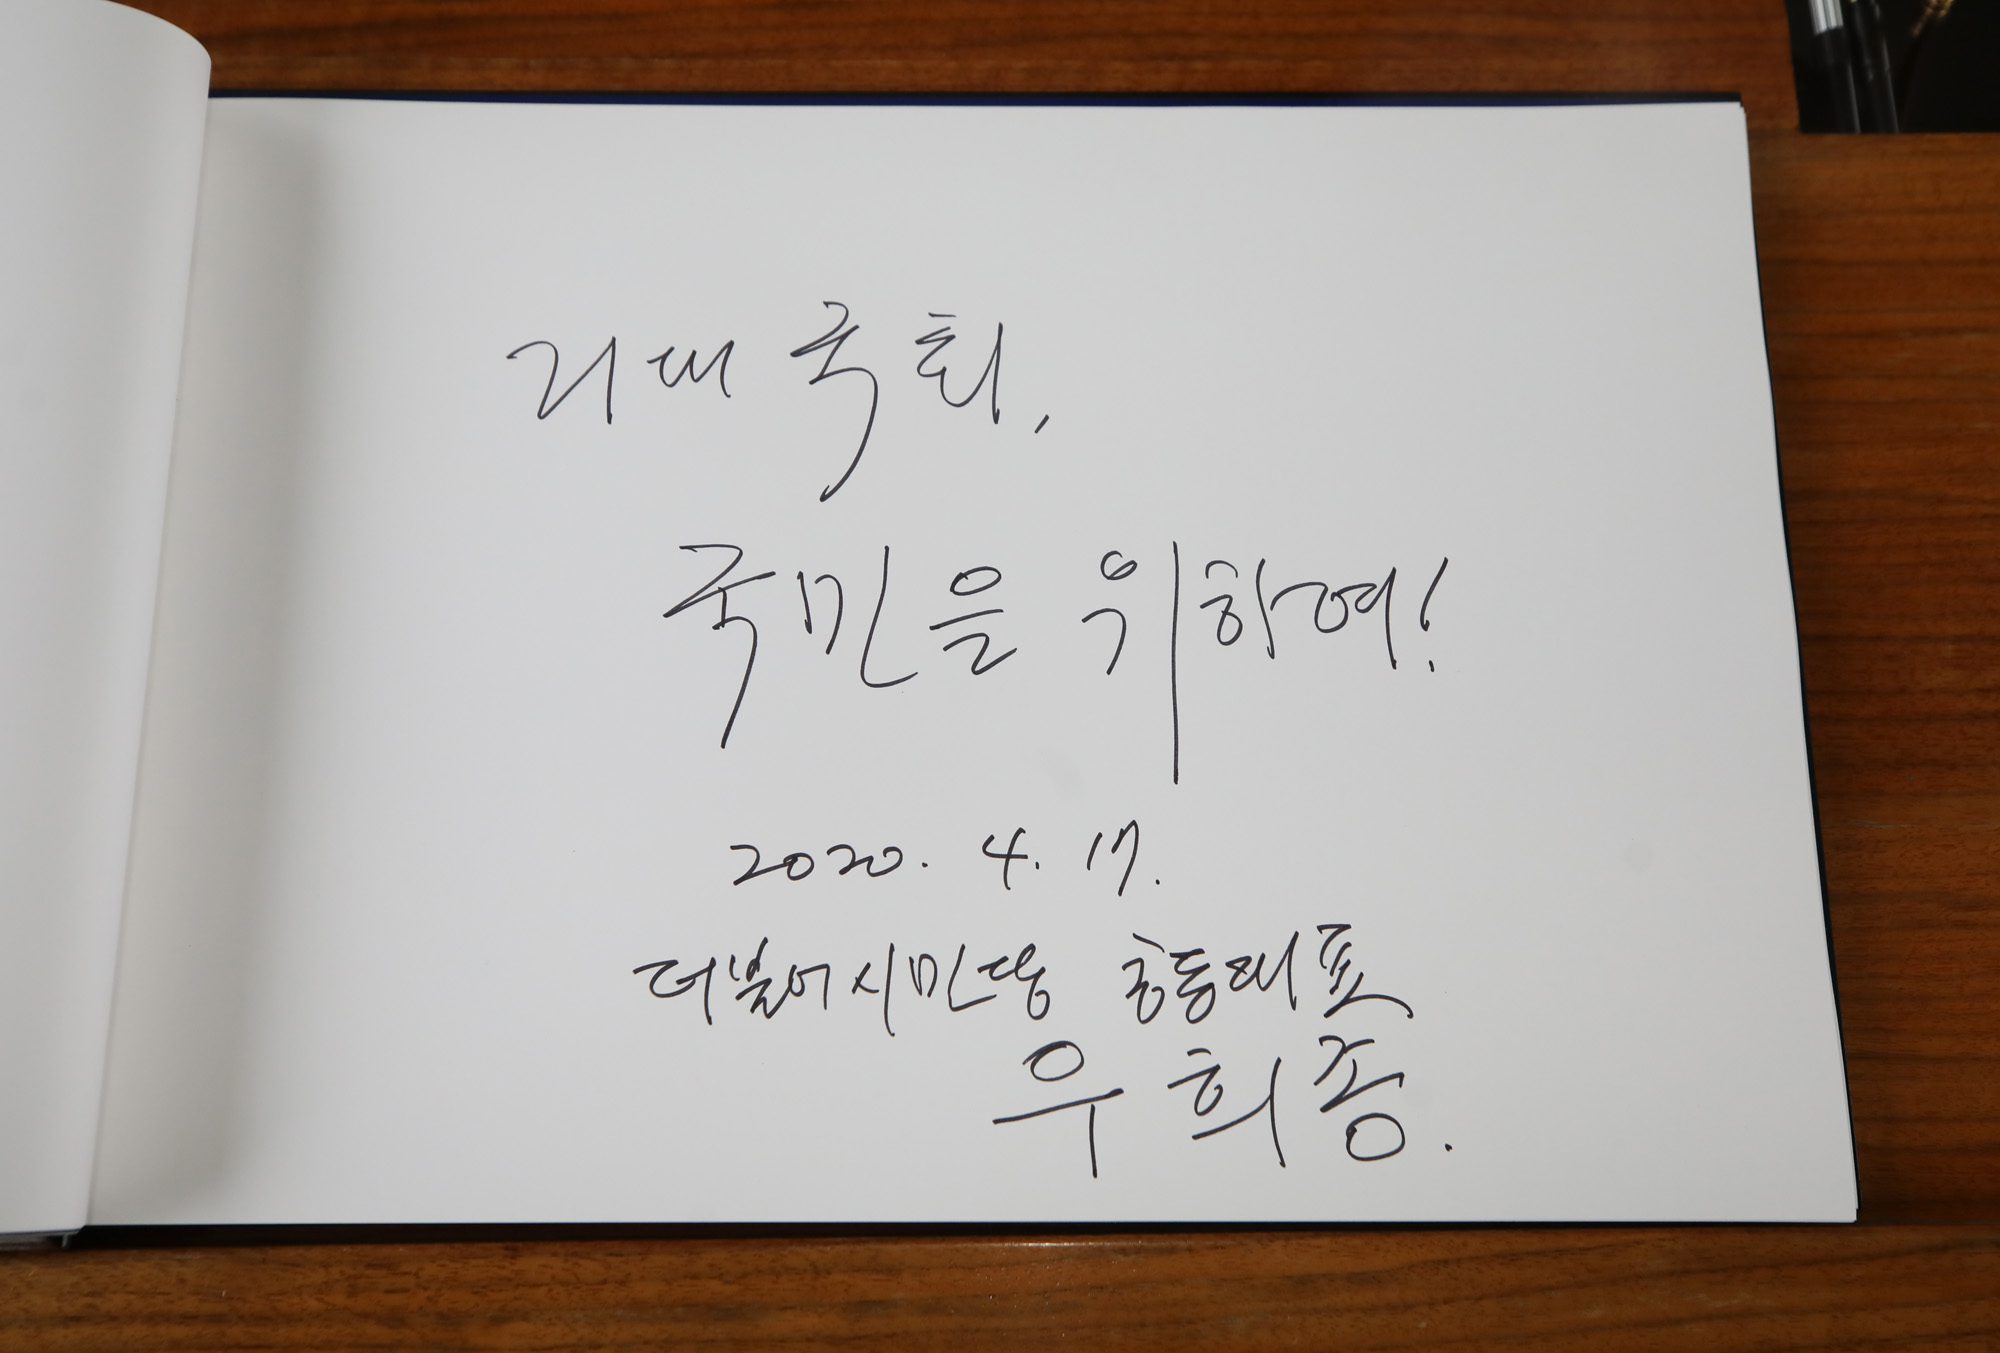 거대 국회,
국민을 위하여!
2020. 4. 17.
더불어시민당 공동대표
우희종.